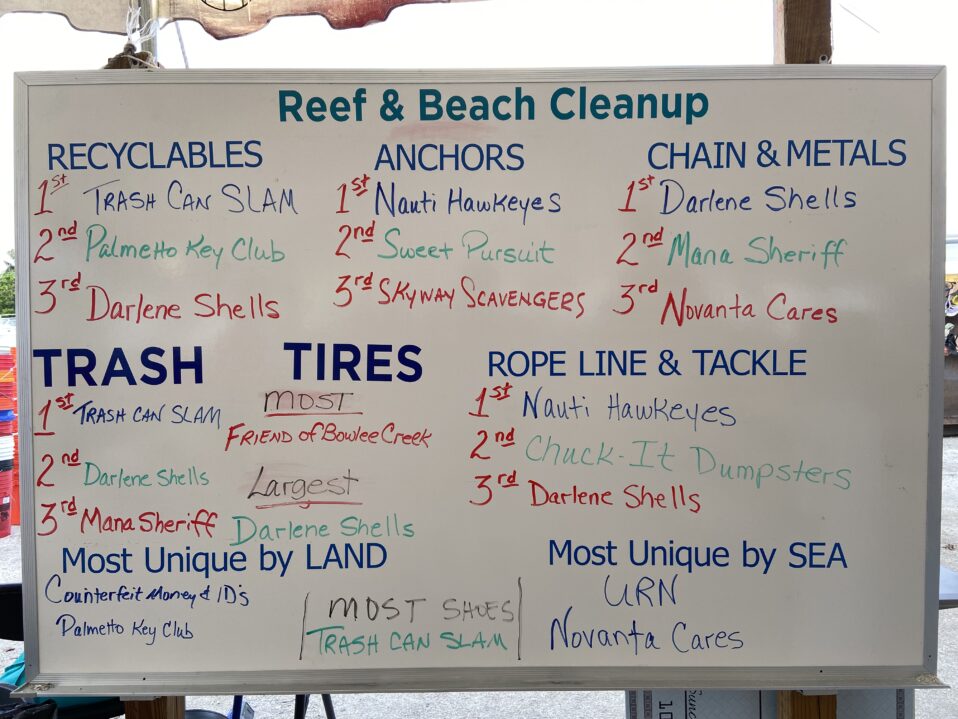 Reef & Beach Cleanup
RECYCLABLES
1st TRASH CAN SLAM
2nd Palmetto Key Club
3rd Darlene Shells
ANCHORS
1st Nauti Hawkeyes
2nd Sweet Pursuit
3rd SKYWAY SCAVENGERS
CHAIN & METALS
1st Darlene Shells
2nd Mana Sheriff
3rd Novanta Cares
TRASH
1st TRASH CAN SLAM
2nd Darlene Shells
3rd Mana Sheriff
TIRES
MOST
FRIEND of Bowlee Creek
Largest
Darlene Shells
ROPE LINE & TACKLE
1st Nauti Hawkeyes
2nd Chuck-It Dumpsters
3rd Darlene Shells
Most Unique by LAND
Counterfeit Money & ID's
Palmetto Key Club
MOST SHOES
TRASH CAN SLAM
Most Unique by SEA
URN
Novanta Cares